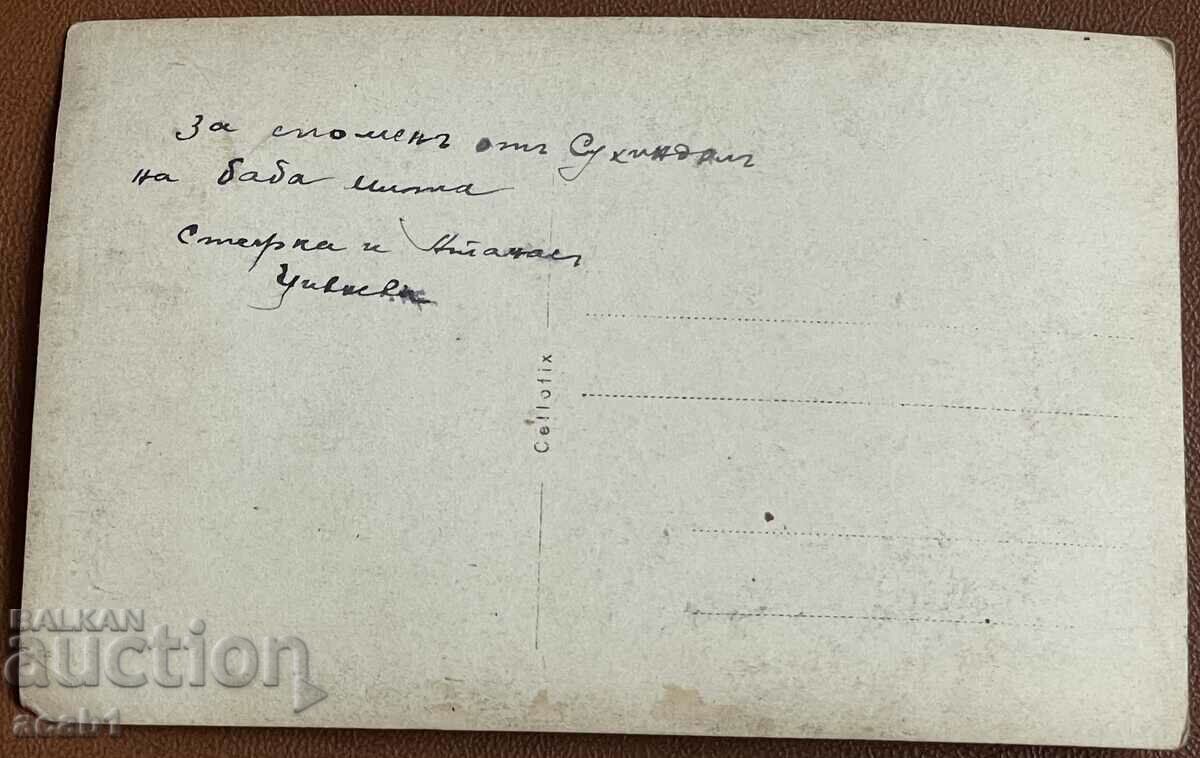 За споменъ отъ Сухиндолъ
на баба Мита
Стефка и Атанасъ
Cellofix
BALKAN
auction
acab1